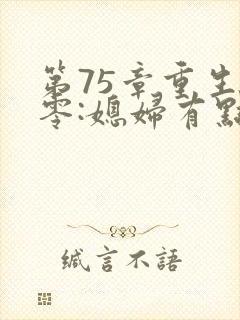 第75章重生
零:媳婦有點
緘言不語